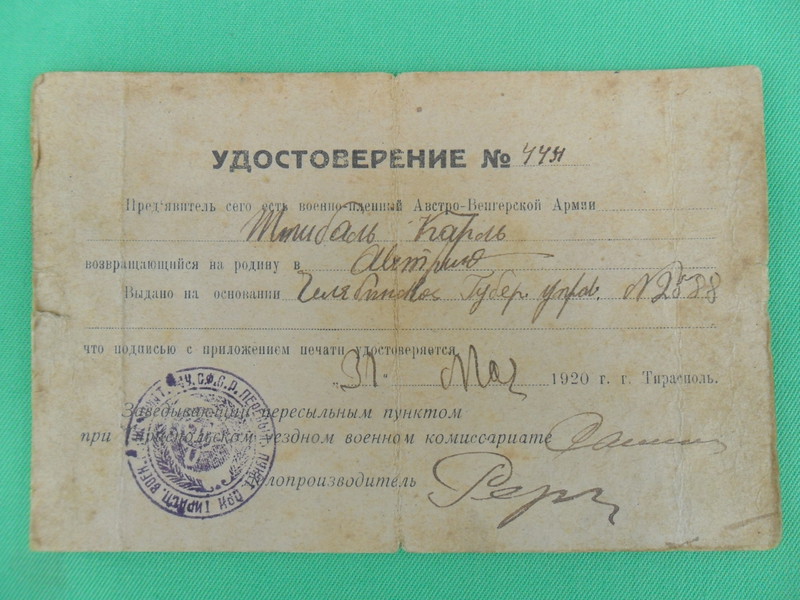 УДОСТОВЕРЕНИЕ №
Пред'явитель сего есть военно-пленный Австро-Венгерской Армии
Штибаль Карль
возвращающийся на родину в Австрию
Выдано на основании Челябинское Губер. управ. №
что подписью с приложением печати удостоверяется
„31. Мая 1920 г. г. Тирасполь.
Заведывающий пересыльным пунктом
при Тираспольском уездном военном комиссариате
Делопроизводитель